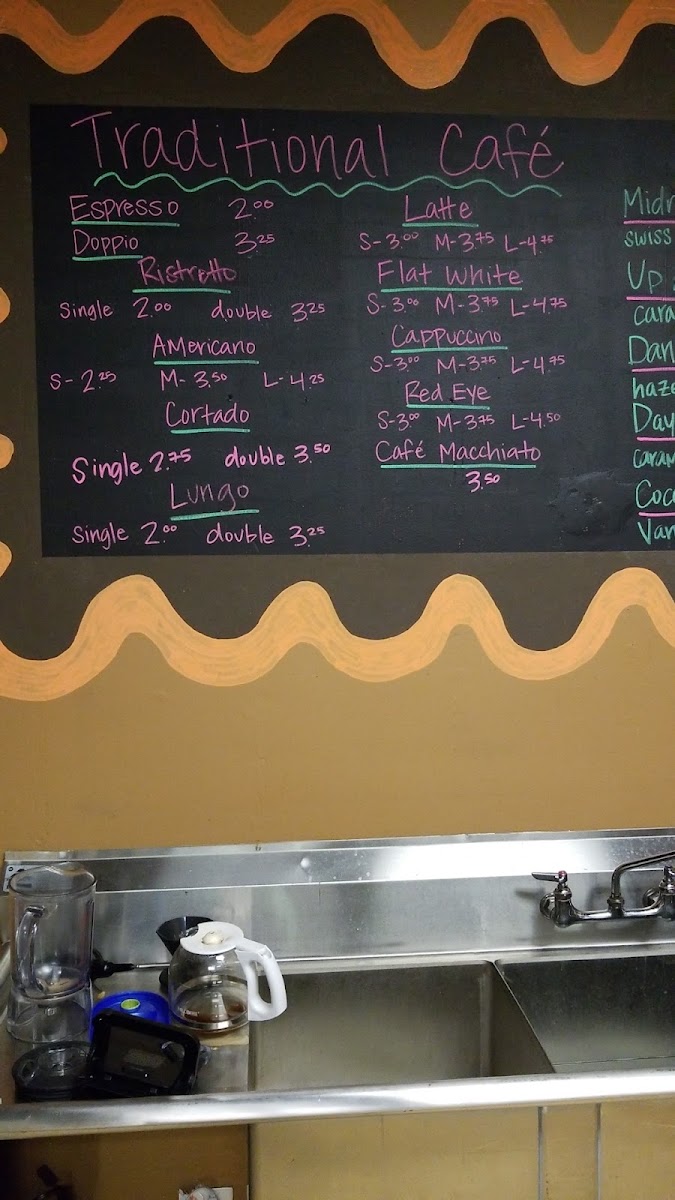 Traditional Café
Espresso 2.00
Doppio 3.25
Ristretto
Single 2.00 double 3.25
Americano
S-2.25 M-3.50 L-4.25
Cortado
Single 2.75 double 3.50
Lungo
Single 2.00 double 3.25
Latte
S-3.00 M-3.75 L-4.75
Flat White
S-3.00 M-3.75 L-4.75
Cappuccino
S-3.00 M-3.75 L-4.75
Red Eye
S-3.00 M-3.75 L-4.50
Café Macchiato
3.50
swiss
Up